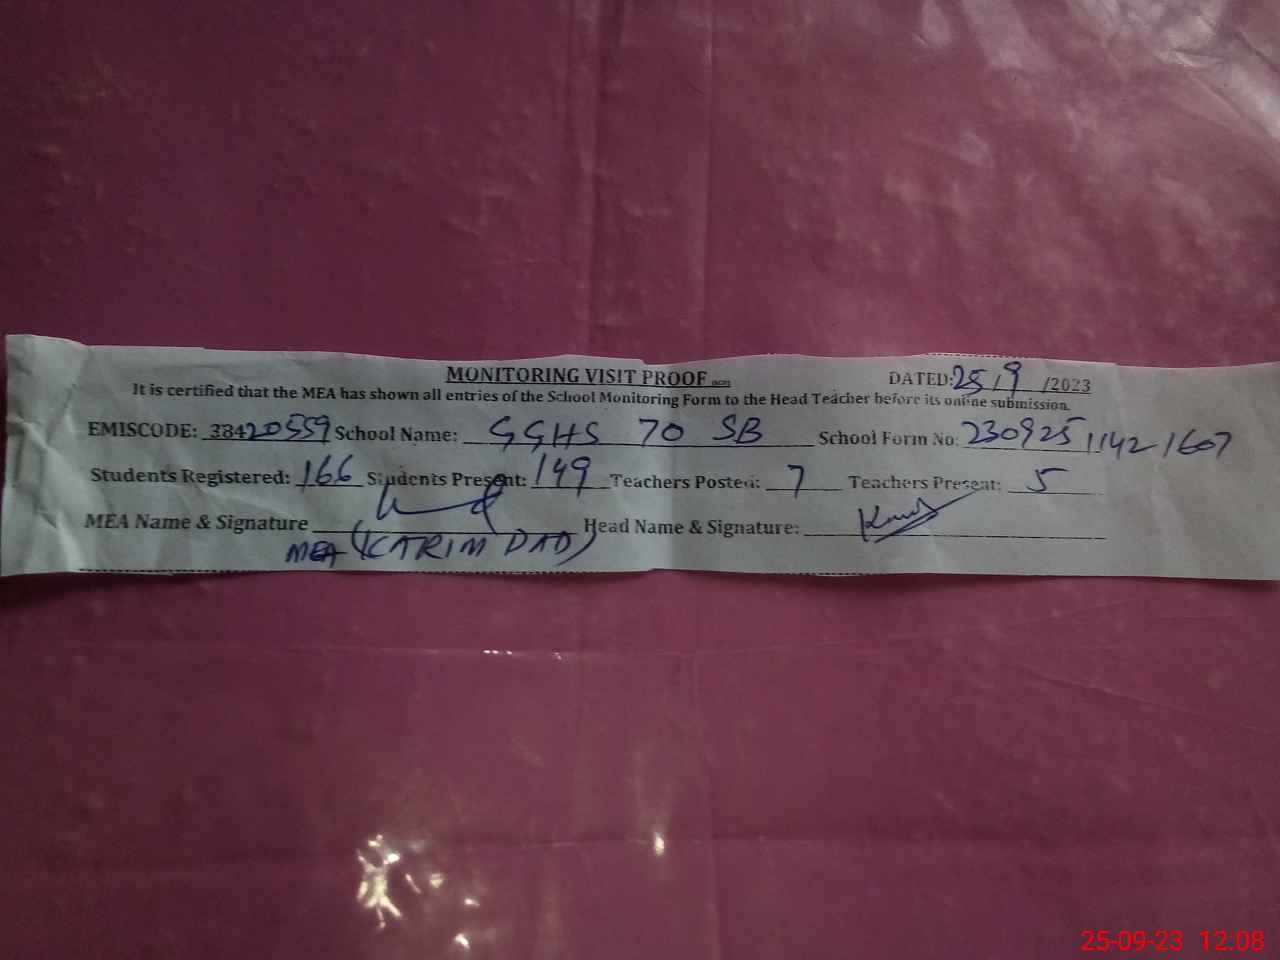 MONITORING VISIT PROOF DATED: 25/9/2023
It is certified that the MEA has shown all entries of the School Monitoring Form to the Head Teacher before its online submission.
EMISCODE: 38420559 School Name: GGHS 70 SB School Form No: 23092511421607
Students Registered: 166 Students Present: 149 Teachers Posted: 7 Teachers Present: 5
MEA Name & Signature Head Name & Signature:
MEA (KARIM DAD)
25-09-23 12:08